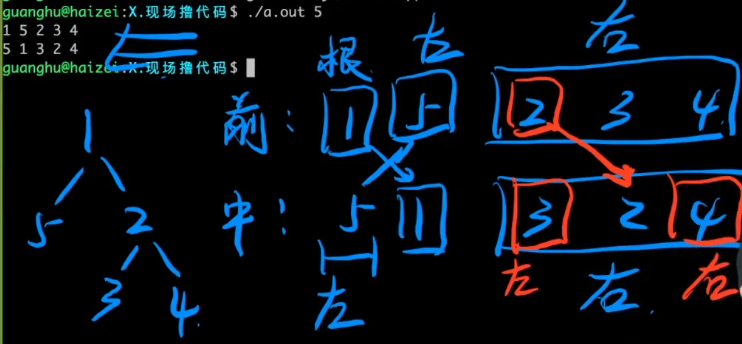 guanghu@haizei:X.现场撸代码$ ./a.out 5
1 5 2 3 4
5 1 3 2 4
guanghu@haizei:X.现场撸代码$
根 左 右
前: 1 5 2 3 4
中: 5 1 3 2 4
左 左 右 右
1
5 2
3 4